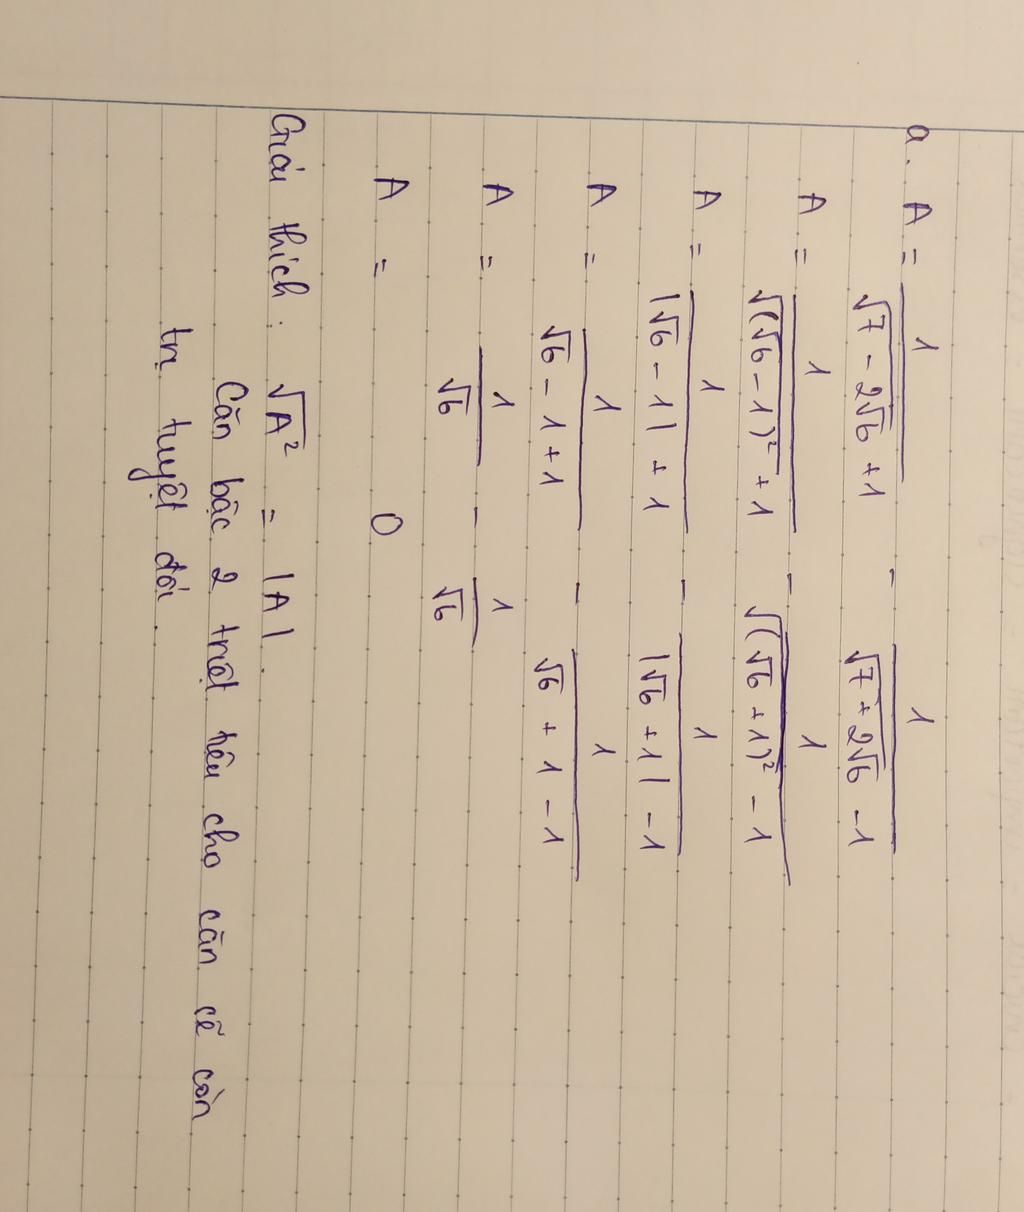 a. A = 1/(√(7 - 2√6) + 1) - 1/(√(7 + 2√6) - 1)
A = 1/(√((√6 - 1)²) + 1) - 1/(√((√6 + 1)²) - 1)
A = 1/(|√6 - 1| + 1) - 1/(|√6 + 1| - 1)
A = 1/(√6 - 1 + 1) - 1/(√6 + 1 - 1)
A = 1/√6 - 1/√6
A = 0
Giải thích : √A² = |A|.
Căn bậc 2 triệt tiêu cho căn sẽ còn
trị tuyệt đối.